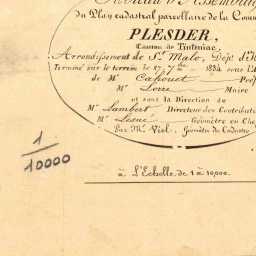 du Plan cadastral parcellaire de la Comm
PLESDER,
Canton de Tinténiac,
Arrondissement de St. Malo, Dépt. d'
Terminé sur le terrain le 17 7bre 1834 sous l'A
de Mr Cahouet Pré
Mr Loire Maire
et sous la Direction de
Mr Lambert Directeur des Contribut
Mr Lesné Géomètre en Che
Par Mr Viel, Géomètre du Cadastre
1
10000
à L'Echelle de 1 à 10,000.